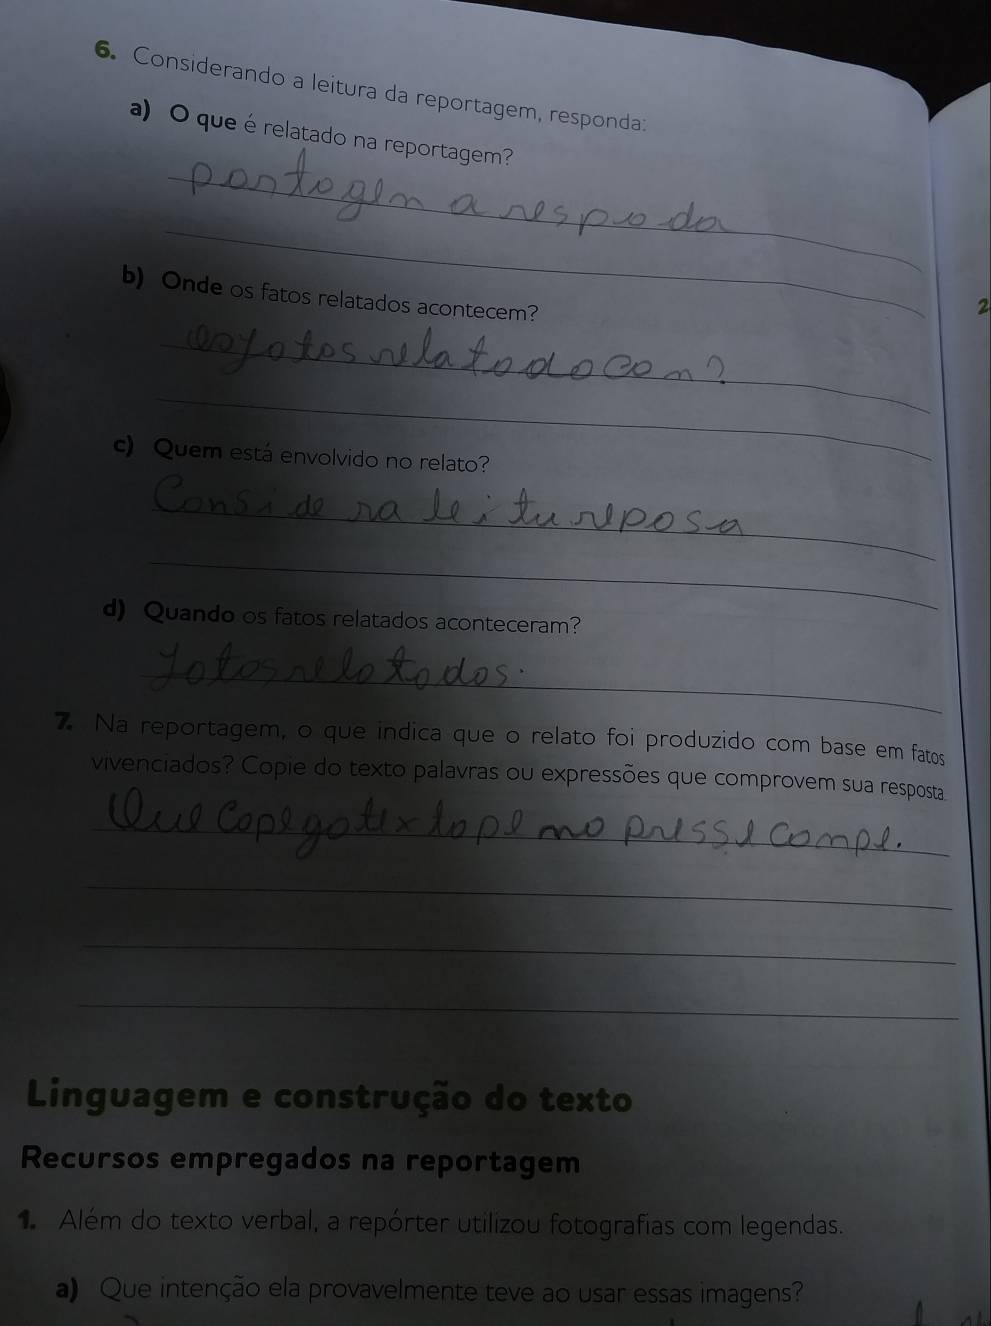 6. Considerando a leitura da reportagem, responda:
a) O que é relatado na reportagem?
pontogem a respoda
b) Onde os fatos relatados acontecem?
2
relatodocom?
c) Quem está envolvido no relato?
Considera leitu reposa
d) Quando os fatos relatados aconteceram?
fotos relotodos.
7. Na reportagem, o que indica que o relato foi produzido com base em fatos
vivenciados? Copie do texto palavras ou expressões que comprovem sua resposta.
Que copegotextope mo presse compe.
Linguagem e construção do texto
Recursos empregados na reportagem
1. Além do texto verbal, a repórter utilizou fotografias com legendas.
a) Que intenção ela provavelmente teve ao usar essas imagens?